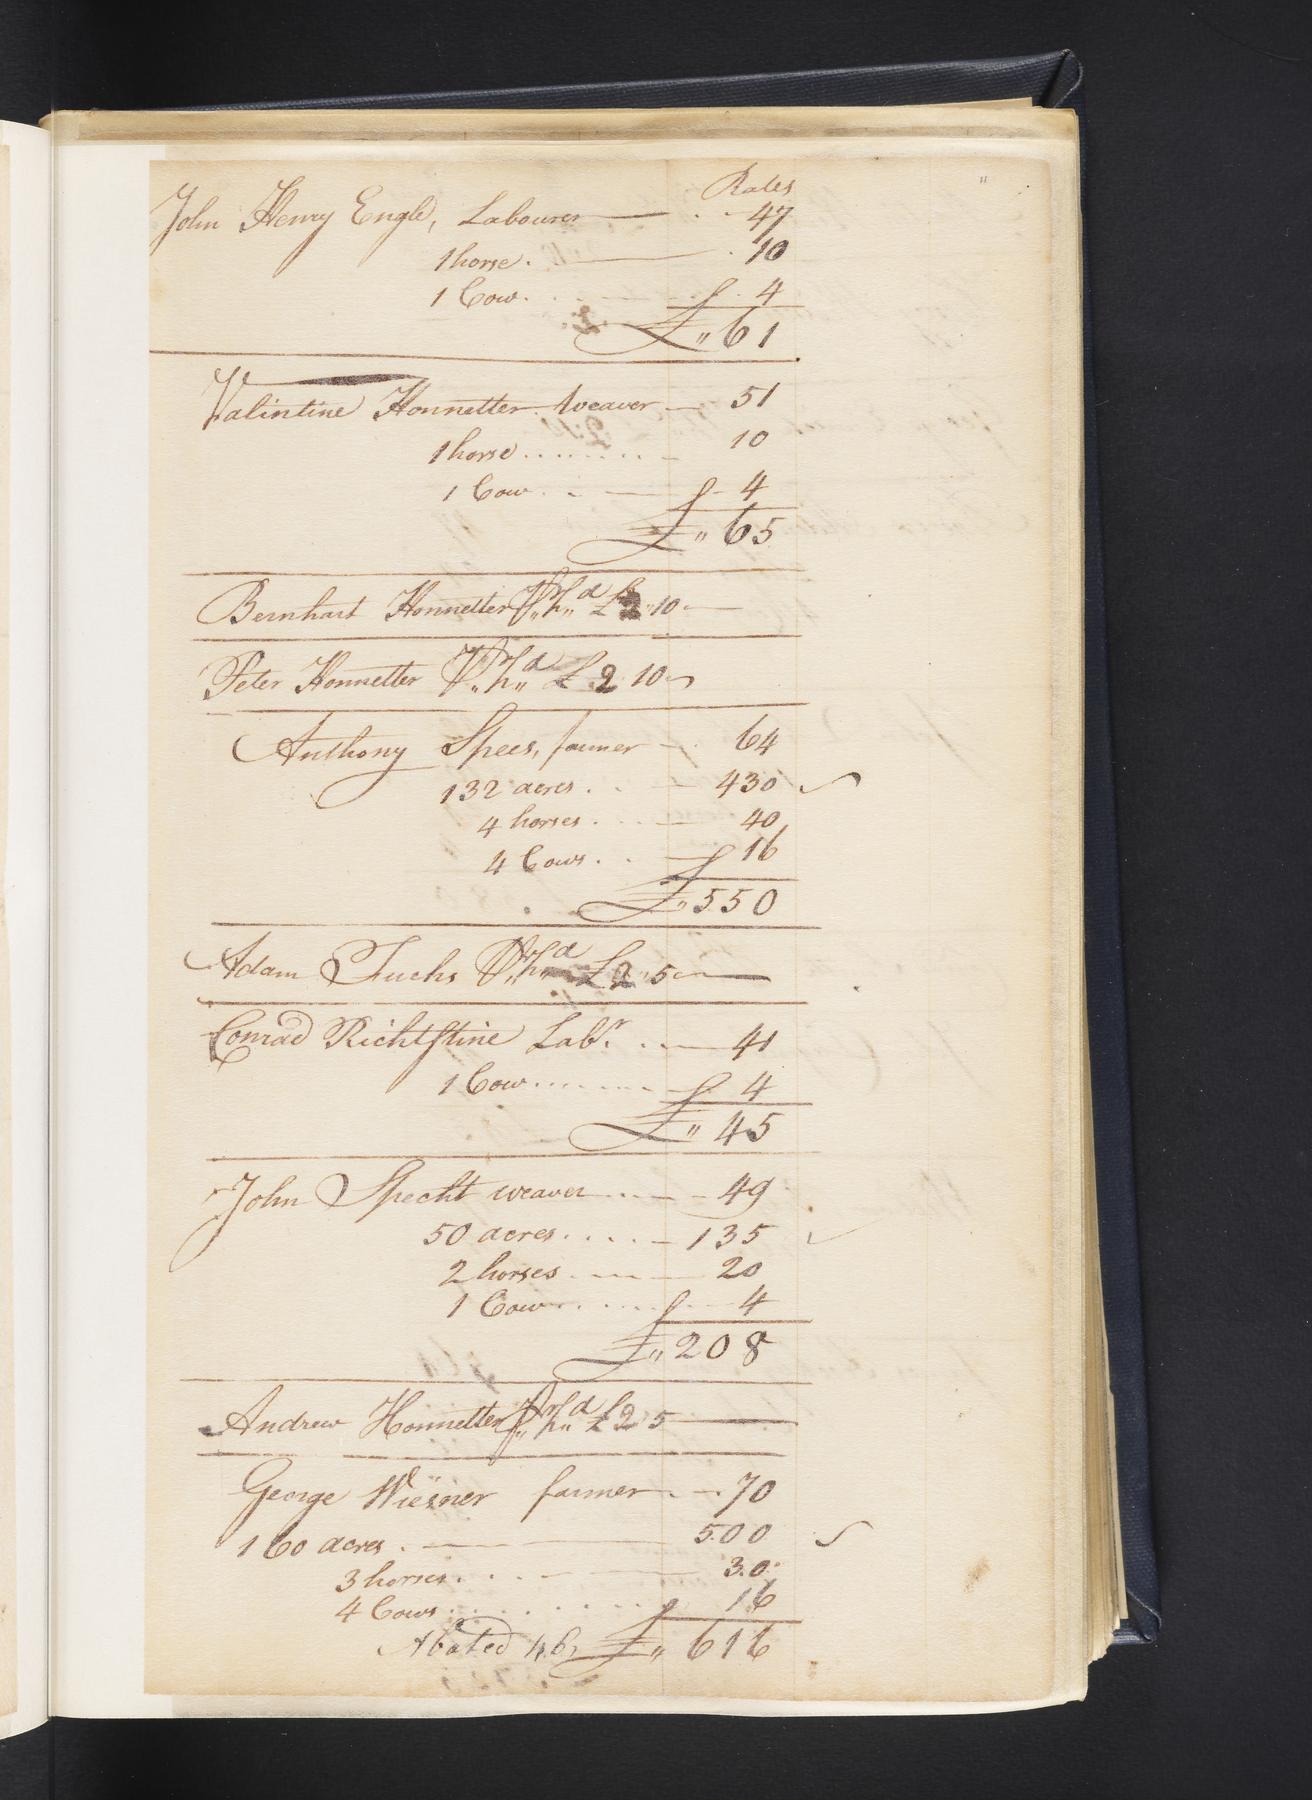 Rates
John Henry Engle, Labourer 47
1 horse 10
1 Cow 4
£ " 61
Valintine Honnetter weaver 51
1 horse 10
1 Cow 4
£ " 65
Bernhart Honnetter £ 2 " 10
Peter Honnetter £ 2 10
Anthony Spees, farmer 64
132 acres 430
4 horses 40
4 Cows 16
£ " 550
Adam Fuchs £ 2 " 5
Conrad Richtstine Labr. 41
1 Cow 4
£ " 45
John Specht weaver 49
50 acres 135
2 horses 20
1 Cow 4
£ " 208
Andrew Honnetter £ 2 5
George Wiesner farmer 70
160 acres 500
3 horses 30
4 Cows 16
Abated 46 £ " 616